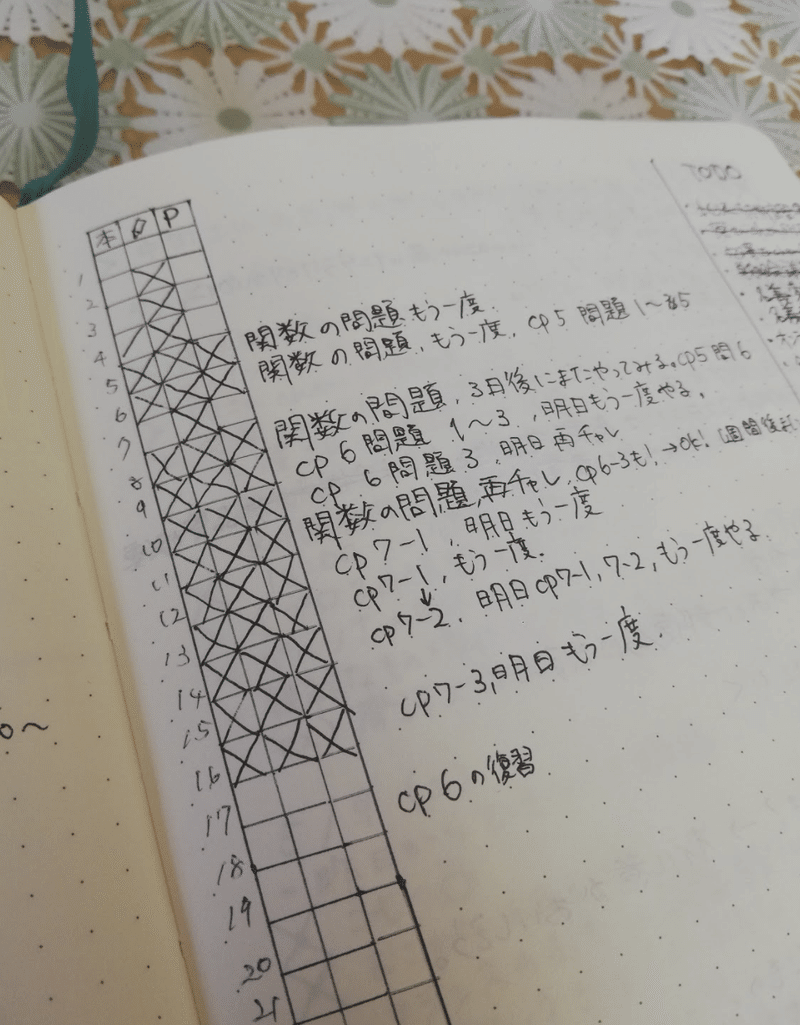 本 P
TODO
1
2
3
4 関数の問題もう一度.
5 関数の問題, もう一度, cp5 問題1〜5
6
7 関数の問題, 3日後にまたやってみる。cp5問6
8 cp6問題 1〜3, 明日もう一度やる。
9 cp 6 問題3, 明日 再チャレ
10 関数の問題, 再チャレ, cp6-3も! →OK! 1週間後また
11 cp7-1, 明日もう一度
12 cp7-1, もう一度.
13 cp7-2. 明日cp7-1, 7-2, もう一度やる
14
15 cp7-3, 明日もう一度.
16
17 cp6の復習
18
19
20
21
0〜